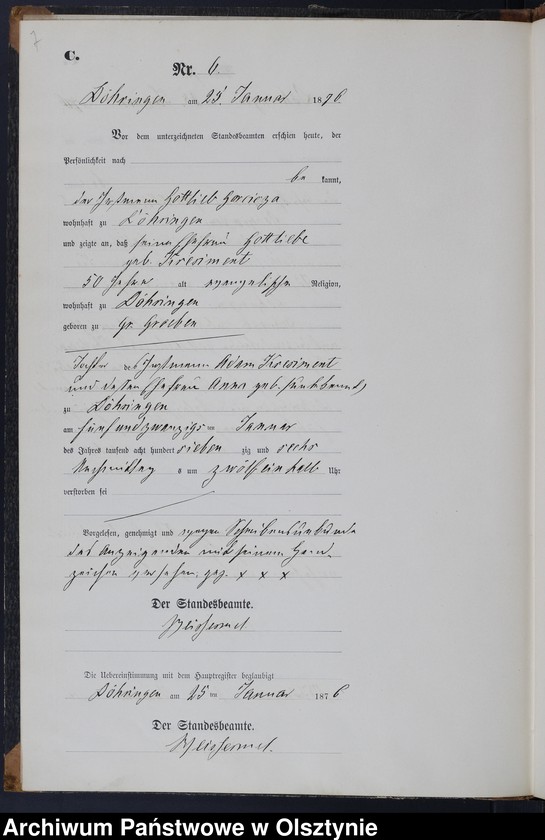 7
C.
Nr. 6.
Döhringen am 25. Januar 1876.
Vor dem unterzeichneten Standesbeamten erschien heute, der
Persönlichkeit nach
be kannt,
der Instmann Gottlieb
wohnhaft zu Döhringen
und zeigte an, daß seine Ehefrau Gottliebe
geb. Kresiment
50 Jahre alt evangelischer Religion,
wohnhaft zu Döhringen
geboren zu Gr. Groeben
Tochter des Instmann Adam Kresiment
und dessen Ehefrau Anna geb.
zu Döhringen
am fünfundzwanzigsten Januar
des Jahres tausend acht hundert sieben zig und sechs
Nachmittag s um zwölfeinhalb Uhr
verstorben sei
Vorgelesen, genehmigt und wegen Schreibensunkunde
des Anzeigenden mit seinem Hand-
zeichen versehen. gez. x x x
Der Standesbeamte.
Weissermel
Die Uebereinstimmung mit dem Hauptregister beglaubigt
Döhringen am 25 ten Januar 1876
Der Standesbeamte.
Weissermel.
Archiwum Państwowe w Olsztynie